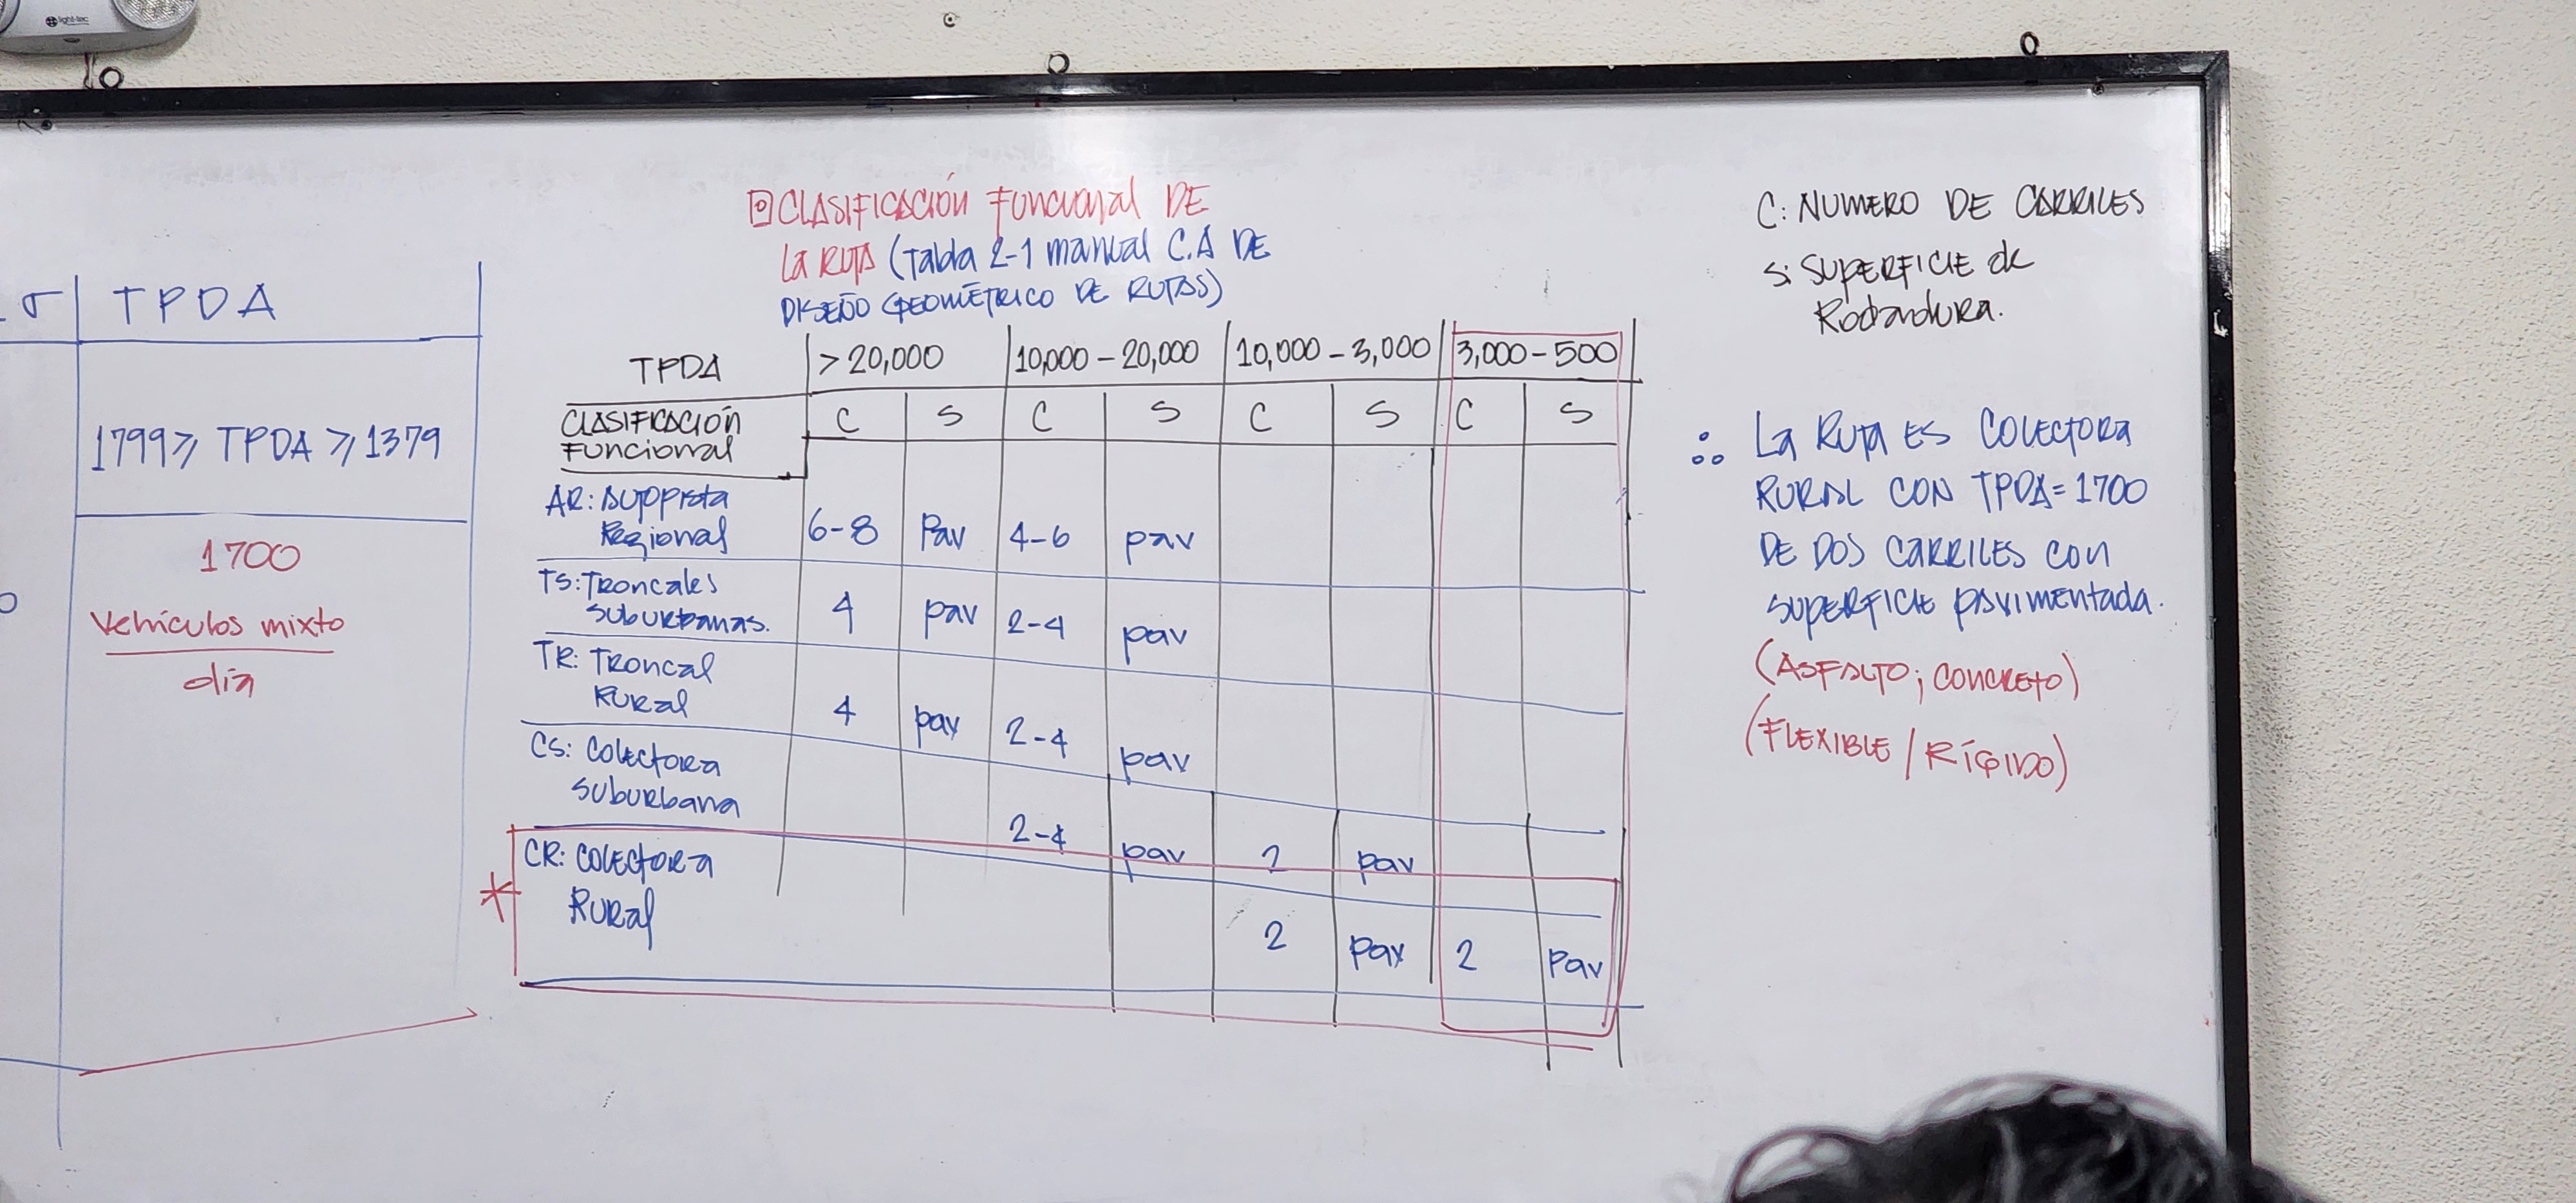 light-tec
σ TPDA
1799 ≥ TPDA ≥ 1379
1700
Vehículos mixto
día
CLASIFICACIÓN FUNCIONAL DE
LA RUTA (Tabla 2-1 manual C.A DE
DISEÑO GEOMÉTRICO DE RUTAS)
TPDA >20,000 10,000-20,000 10,000-3,000 3,000-500
CLASIFICACIÓN C S C S C S C S
FUNCIONAL
AR: AUTOPISTA
Regional 6-8 Pav 4-6 pav
TS: TRONCALES
SUBURBANAS. 4 pav 2-4 pav
TR: TRONCAL
RURAL 4 pav 2-4 pav
CS: COLECTORA
SUBURBANA 2-4 pav 2 pav
* CR: COLECTORA
RURAL 2 pav 2 Pav
C: NUMERO DE CARRILES
S: SUPERFICIE de
Rodadura.
∴ La RUTA ES COLECTORA
RURAL CON TPDA=1700
DE DOS CARRILES CON
SUPERFICIE PAVIMENTADA.
(ASFALTO; CONCRETO)
(FLEXIBLE / RÍGIDO)